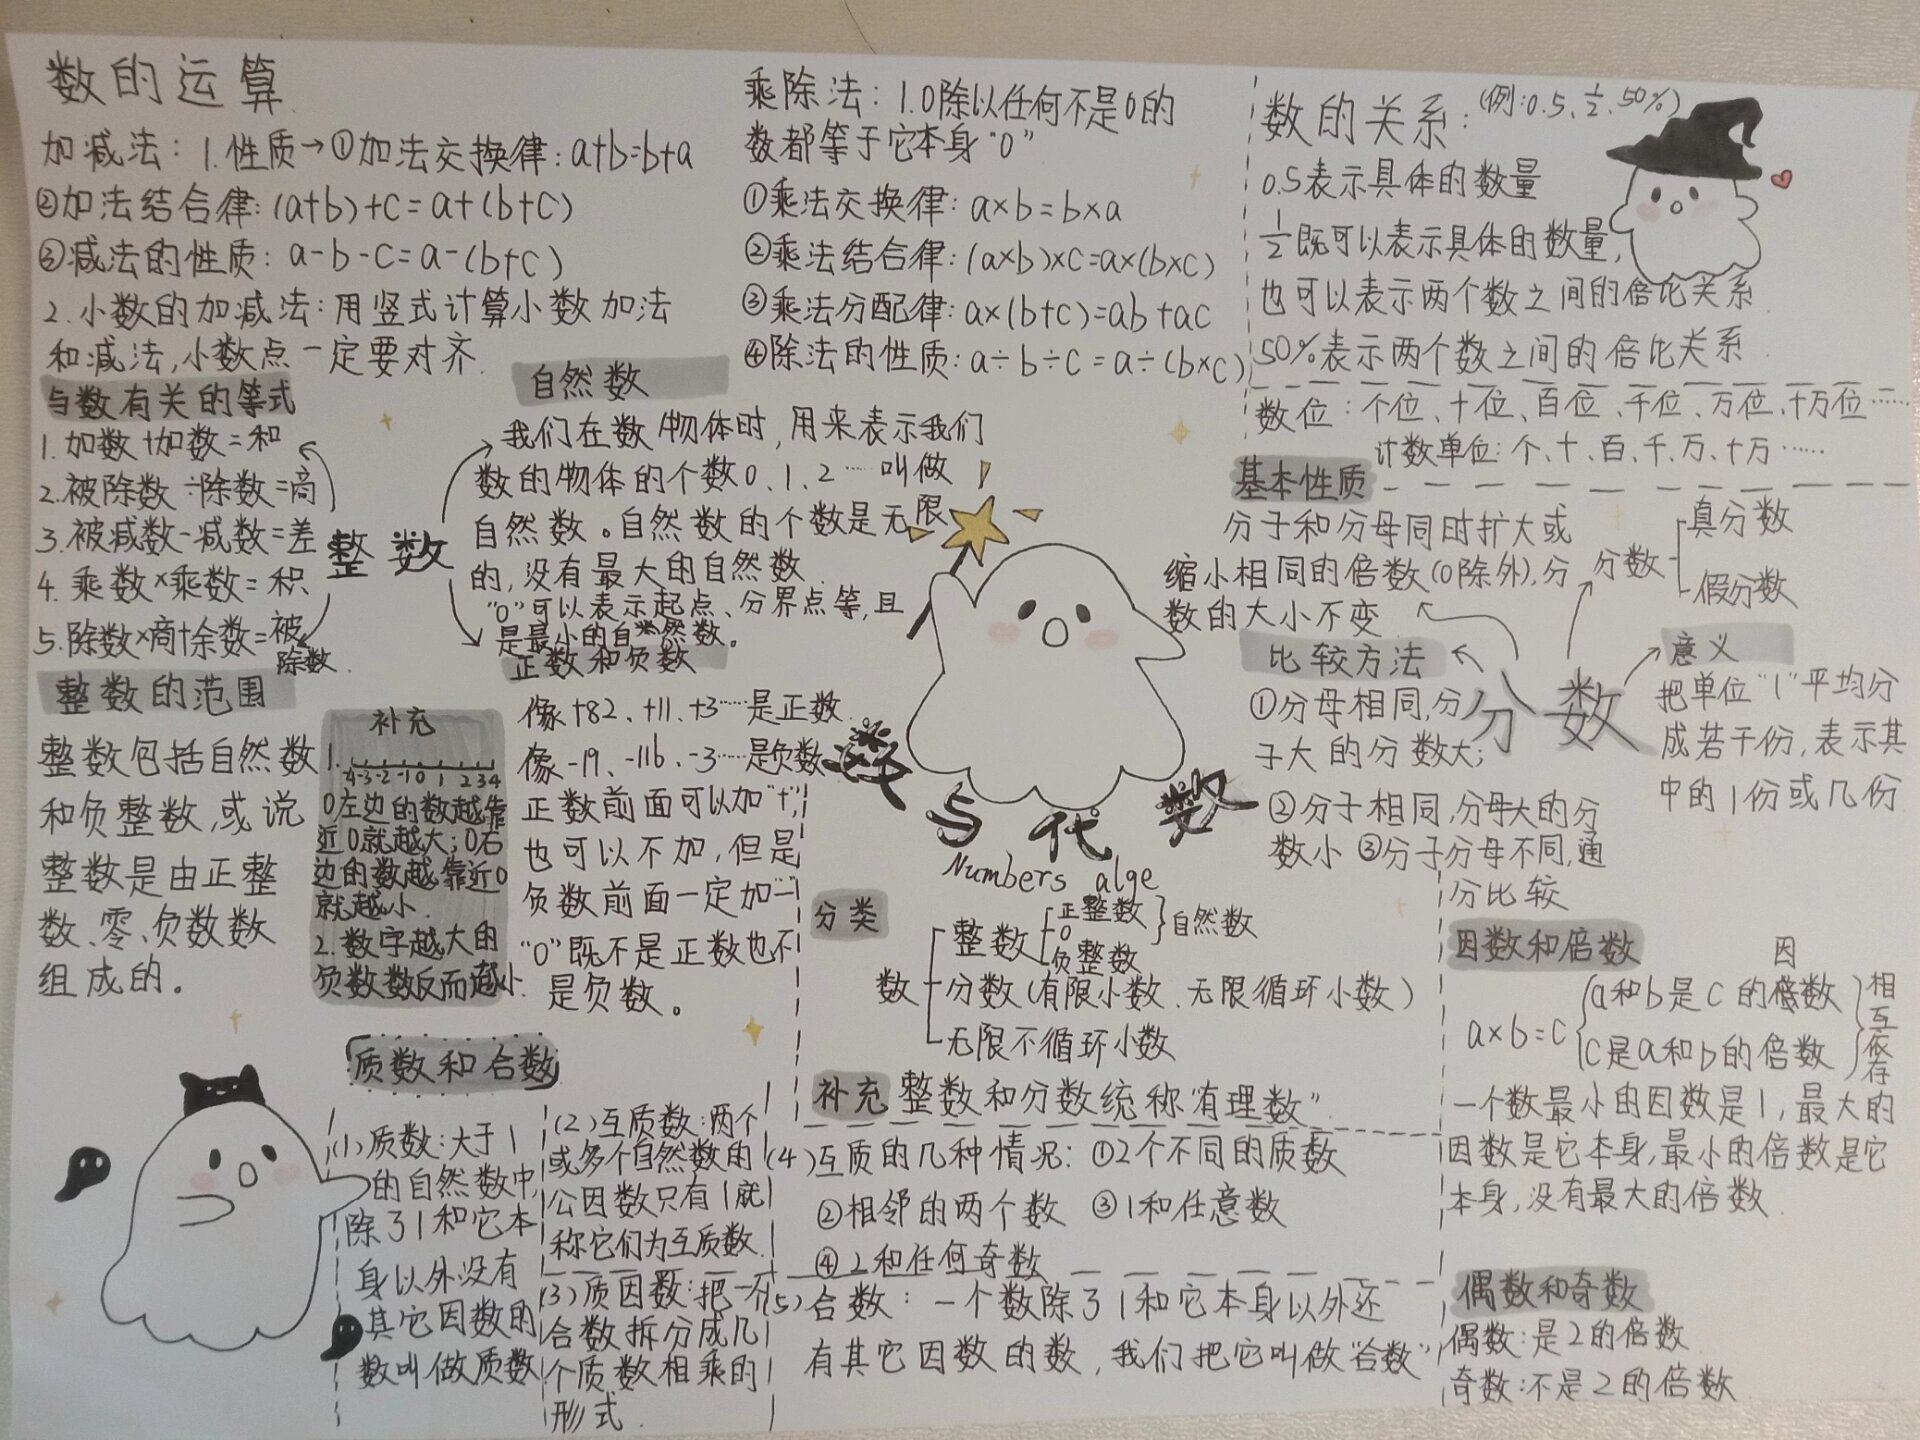 数的运算
加减法：1.性质→①加法交换律：a+b=b+a
②加法结合律：(a+b)+c=a+(b+c)
③减法的性质：a-b-c=a-(b+c)
2.小数的加减法：用竖式计算小数加法
和减法,小数点一定要对齐.
与数有关的等式
1.加数+加数=和
2.被除数÷除数=商
3.被减数-减数=差
4.乘数×乘数=积
5.除数×商+余数=被
除数.
整数的范围
整数包括自然数
和负整数,或说
整数是由正整
数、零、负数数
组成的。
整数
自然数
我们在数物体时，用来表示我们
数的物体的个数0、1、2……叫做
自然数。自然数的个数是无限
的,没有最大的自然数.
"0"可以表示起点、分界点等,且
是最小的自然数。
正数和负数
像+82、+11、+3……是正数.
像-19、-116、-3……是负数
正数前面可以加"+",
也可以不加,但是
负数前面一定加"-"
"0"既不是正数也不
是负数。
补充
1.
-4 -3 -2 -1 0 1 2 3 4
0左边的数越靠
近0就越大;0右
边的数越靠近0
就越小.
2.数字越大的
负数数反而越小.
乘除法：1.0除以任何不是0的
数都等于它本身"0"
①乘法交换律：a×b=b×a
②乘法结合律：(a×b)×c=a×(b×c)
③乘法分配律：a×(b+c)=ab+ac
④除法的性质：a÷b÷c=a÷(b×c)
数的关系：(例:0.5、1/2、50%)
0.5表示具体的数量
1/2既可以表示具体的数量,
也可以表示两个数之间的倍比关系.
50%表示两个数之间的倍比关系.
数位：个位、十位、百位、千位、万位、十万位……
计数单位：个、十、百、千、万、十万……
基本性质
分子和分母同时扩大或
缩小相同的倍数(0除外),分
数的大小不变.
分数
真分数
假分数
分数
比较方法
①分母相同,分
子大的分数大;
②分子相同,分母大的分
数小 ③分子分母不同,通
分比较
意义
把单位"1"平均分
成若干份,表示其
中的1份或几份.
数与代数
Numbers alge
分类
数
整数
正整数
0
负整数
自然数
分数(有限小数、无限循环小数)
无限不循环小数
补充 整数和分数统称"有理数".
因数和倍数
因
a×b=c
a和b是c的倍数
c是a和b的倍数
相互依存
一个数最小的因数是1,最大的
因数是它本身,最小的倍数是它
本身,没有最大的倍数.
质数和合数
(1)质数:大于1
的自然数中,
除了1和它本
身以外没有
其它因数的
数叫做质数
(2)互质数:两个
或多个自然数的
公因数只有1就
称它们为互质数.
(3)质因数:把一个
合数拆分成几
个质数相乘的
形式.
(4)互质的几种情况：①2个不同的质数
②相邻的两个数 ③1和任意数
④2和任何奇数
(5)合数：一个数除了1和它本身以外还
有其它因数的数,我们把它叫做"合数"
偶数和奇数
偶数:是2的倍数.
奇数:不是2的倍数.